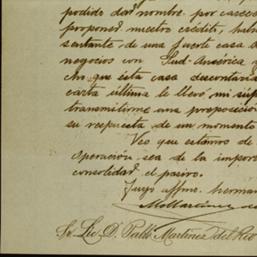 podido dar nombre. por carecer
proponer nuestro crédito, habl
sentante de una fuerte casa d
negocios con Sud-América y
cho que ésta casa descontaria
carta última le llevó mi sup
transmitirme una proposició
su respuesta de un momento
Veo que estamos de
operación, sea de la impor
consolidar el pasivo.
Tuyo affmo. herman
Sr. Lic. D. Pablo Martinez del Rio